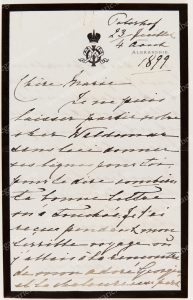 Peterhof
23 Juillet
4 Août
ALEXANDRIE
1899
Chère Marie
Je ne puis
laisser partir notre
cher Waldemar
sans lui donner
ces lignes pour toi
pour te dire combien
ta bonne lettre
m'a touchée, j'ai
reçue pendant mon
terrible voyage où
j'allais à la rencontre
de mon adoré Georgie